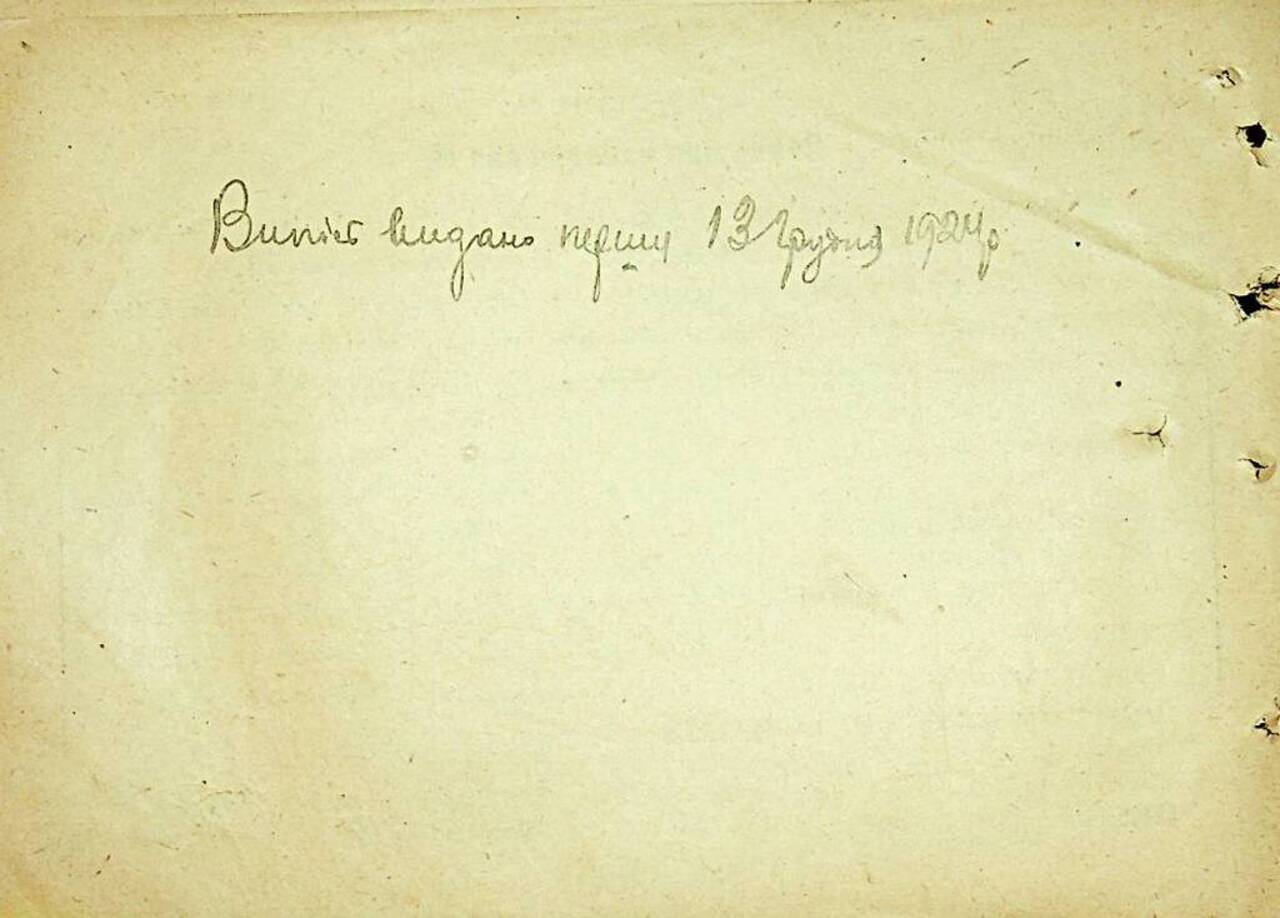 Випис видано перший 13 грудня 1924 р